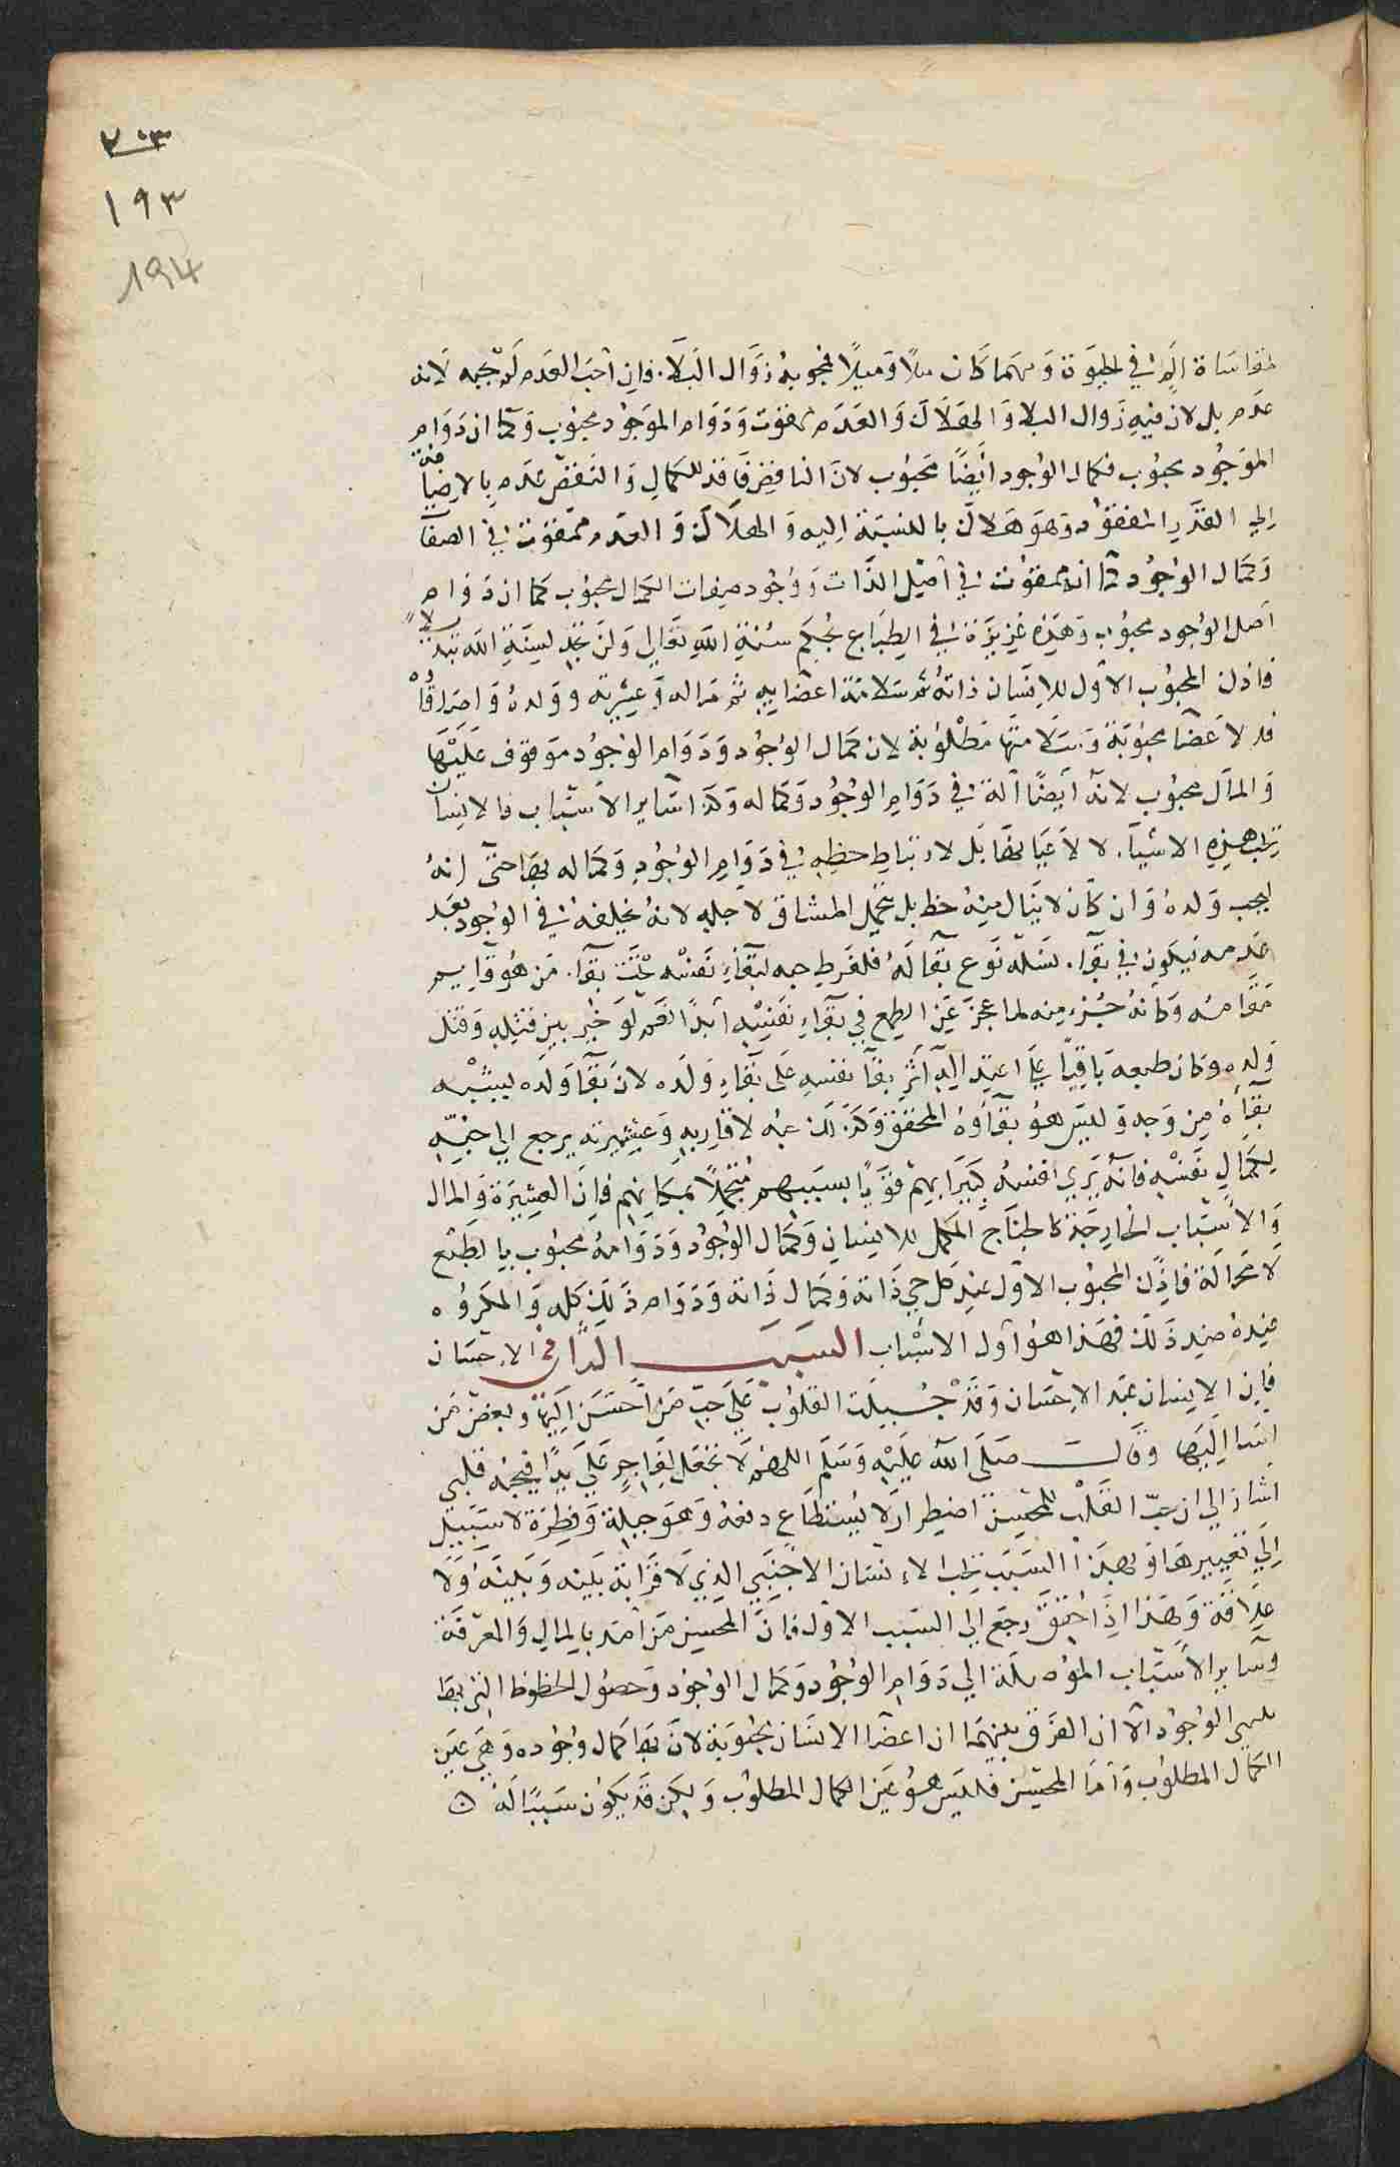 ٢٠٣
١٩٣
194
لمقاساة الم في الحيوة ومهما كان مبلًا وميلًا فمحبوبه زوال البلا. فان احب العدم لم يحبه لانه
عدم بل لان فيه زوال البلا والهلاك والعدم ممقوت ودوام الموجود محبوب وكما ان دوام
الموجود محبوب فكمال الوجود ايضًا محبوب لان الناقص فاقد للكمال والنقص عدم بالاضافة
الي القدر المفقود وهو هلاك بالنسبة اليه والهلاك والعدم ممقوت في الصفا
وكمال الوجود كما انه ممقوت في اصل الذات ووجود صفات الكمال محبوب كما ان دوام
اصل الوجود محبوب وهذه غريزة في الطباع بحكم سنة الله تعالي ولن تجد لسنة الله تبديلا
فاذن المحبوب الاول للانسان ذاته ثم سلامة اعضايه ثم ماله وعشيرته وولده واصدقاؤه
فالاعضا محبوبة وسلامتها مطلوبة لان كمال الوجود ودوام الوجود موقوف عليها
والمال محبوب لانه ايضًا آلة في دوام الوجود وكماله وكذا ساير الاسباب فالانسان
يحب هذه الاشيا. لا لاعيانها بل لارتباط حظه في دوام الوجود وكماله بها حتى انه
ليحب ولده وان كان لا ينال منه حظ بل يتحمل المشاق لاجله لانه يخلفه في الوجود بعد
عدمه فيكون في بقا. نسله نوع بقا له فلفرط حبه لبقاء نفسه يحب بقا. من هو قايم
مقامه وكانه جزء منه لما عجز عن الطمع في بقاء نفسه ابدًا نعم لو خير بين قتله وقتل
ولده وكان طبعه باقيًا علي اعتداله آثر بقا نفسه على بقاء ولده لان بقا ولده يشبه
بقاه من وجه وليس هو بقاوه المحقق وكذلك حبه لاقاربه وعشيرته يرجع الي حبه
لكمال نفسه فانه يري نفسه كبيرا بهم قويًا بسببهم متجملًا بمكانهم فان العشيرة والمال
والاسباب الخارجة كالجناح المكمل للانسان وكمال الوجود ودوامه محبوب بالطبع
لا محالة فاذن المحبوب الاول عند كل حي ذاته وكمال ذاته ودوام ذلك كله والمكروه
عنده ضد ذلك فهذا هو اول الاسباب السبب الثاني الاحسان
فان الانسان عبد الاحسان وقد جبلت القلوب علي حب من احسن اليها وبغض من
اسا اليها وقال صلى الله عليه وسلم اللهم لا تجعل لفاجر علي يدًا فيحبه قلبي
اشار الي ان حب القلب للمحسن اضطرار لا يستطاع دفعه وهو جبلة وفطرة لا سبيل
الي تغييرها وبهذا السبب يحب الانسان الاجنبي الذي لا قرابة بينه وبينه ولا
علاقة وهذا اذا حقق رجع الي السبب الاول فان المحسن من امد بالمال والمعرفة
وساير الاسباب الموصلة الي دوام الوجود وكمال الوجود وحصول الحظوظ التي بها
يتهيا الوجود الا ان الفرق بينهما ان اعضا الانسان محبوبة لان بها كمال وجوده وهي عين
الكمال المطلوب واما المحسن فليس هو عين الكمال المطلوب ولكن قد يكون سببًا له